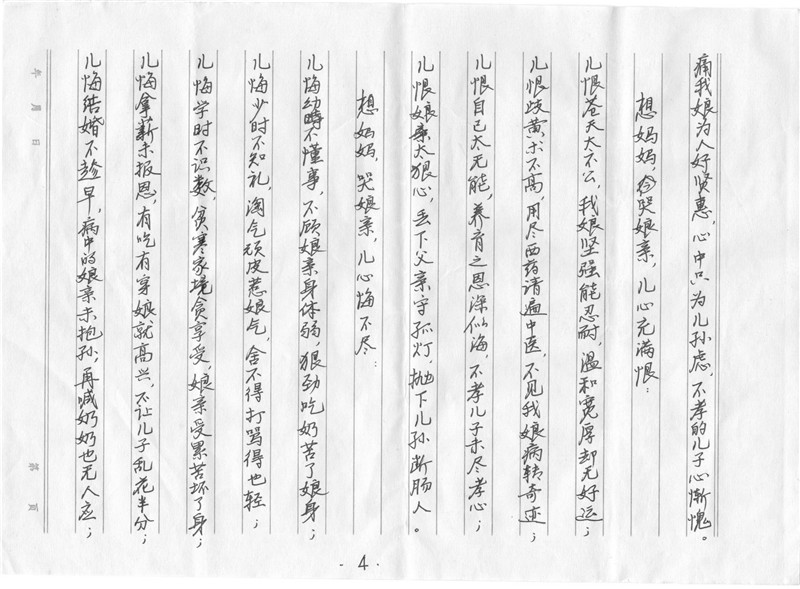 痛我娘为人好贤惠，心中只为儿孙虑，不孝的儿子心惭愧。
想妈妈，哭娘亲，儿心充满恨：
儿恨苍天太不公，我娘坚强能忍耐，温和宽厚却无好运；
儿恨歧黄术不高，用尽西药请遍中医，不见我娘病转奇迹；
儿恨自己太无能，养育之恩深似海，不孝儿子未尽孝心；
儿恨娘亲太狠心，丢下父亲守孤灯，抛下儿孙断肠人。
想妈妈，哭娘亲，儿心悔不尽：
儿悔幼时不懂事，不顾娘亲身体弱，狠劲吃奶苦了娘身；
儿悔少时不知礼，淘气顽皮惹娘气，舍不得打骂得也轻；
儿悔学时不识数，贫寒家境贪享受，娘亲受累苦坏了身；
儿悔拿薪未报恩，有吃有穿娘就高兴，不让儿子乱花半分；
儿悔结婚不趁早，病中的娘亲未抱孙，再喊奶奶也无人应；
年 月 日
第 页
- 4 -